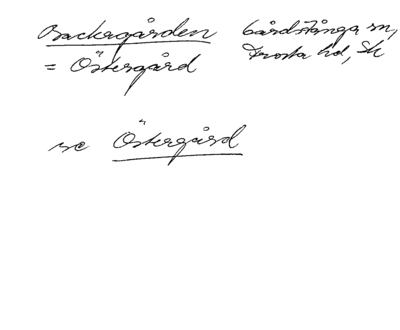 Backagården Gårdstånga sn,
= Östergård Frosta hd, Sk
se Östergård